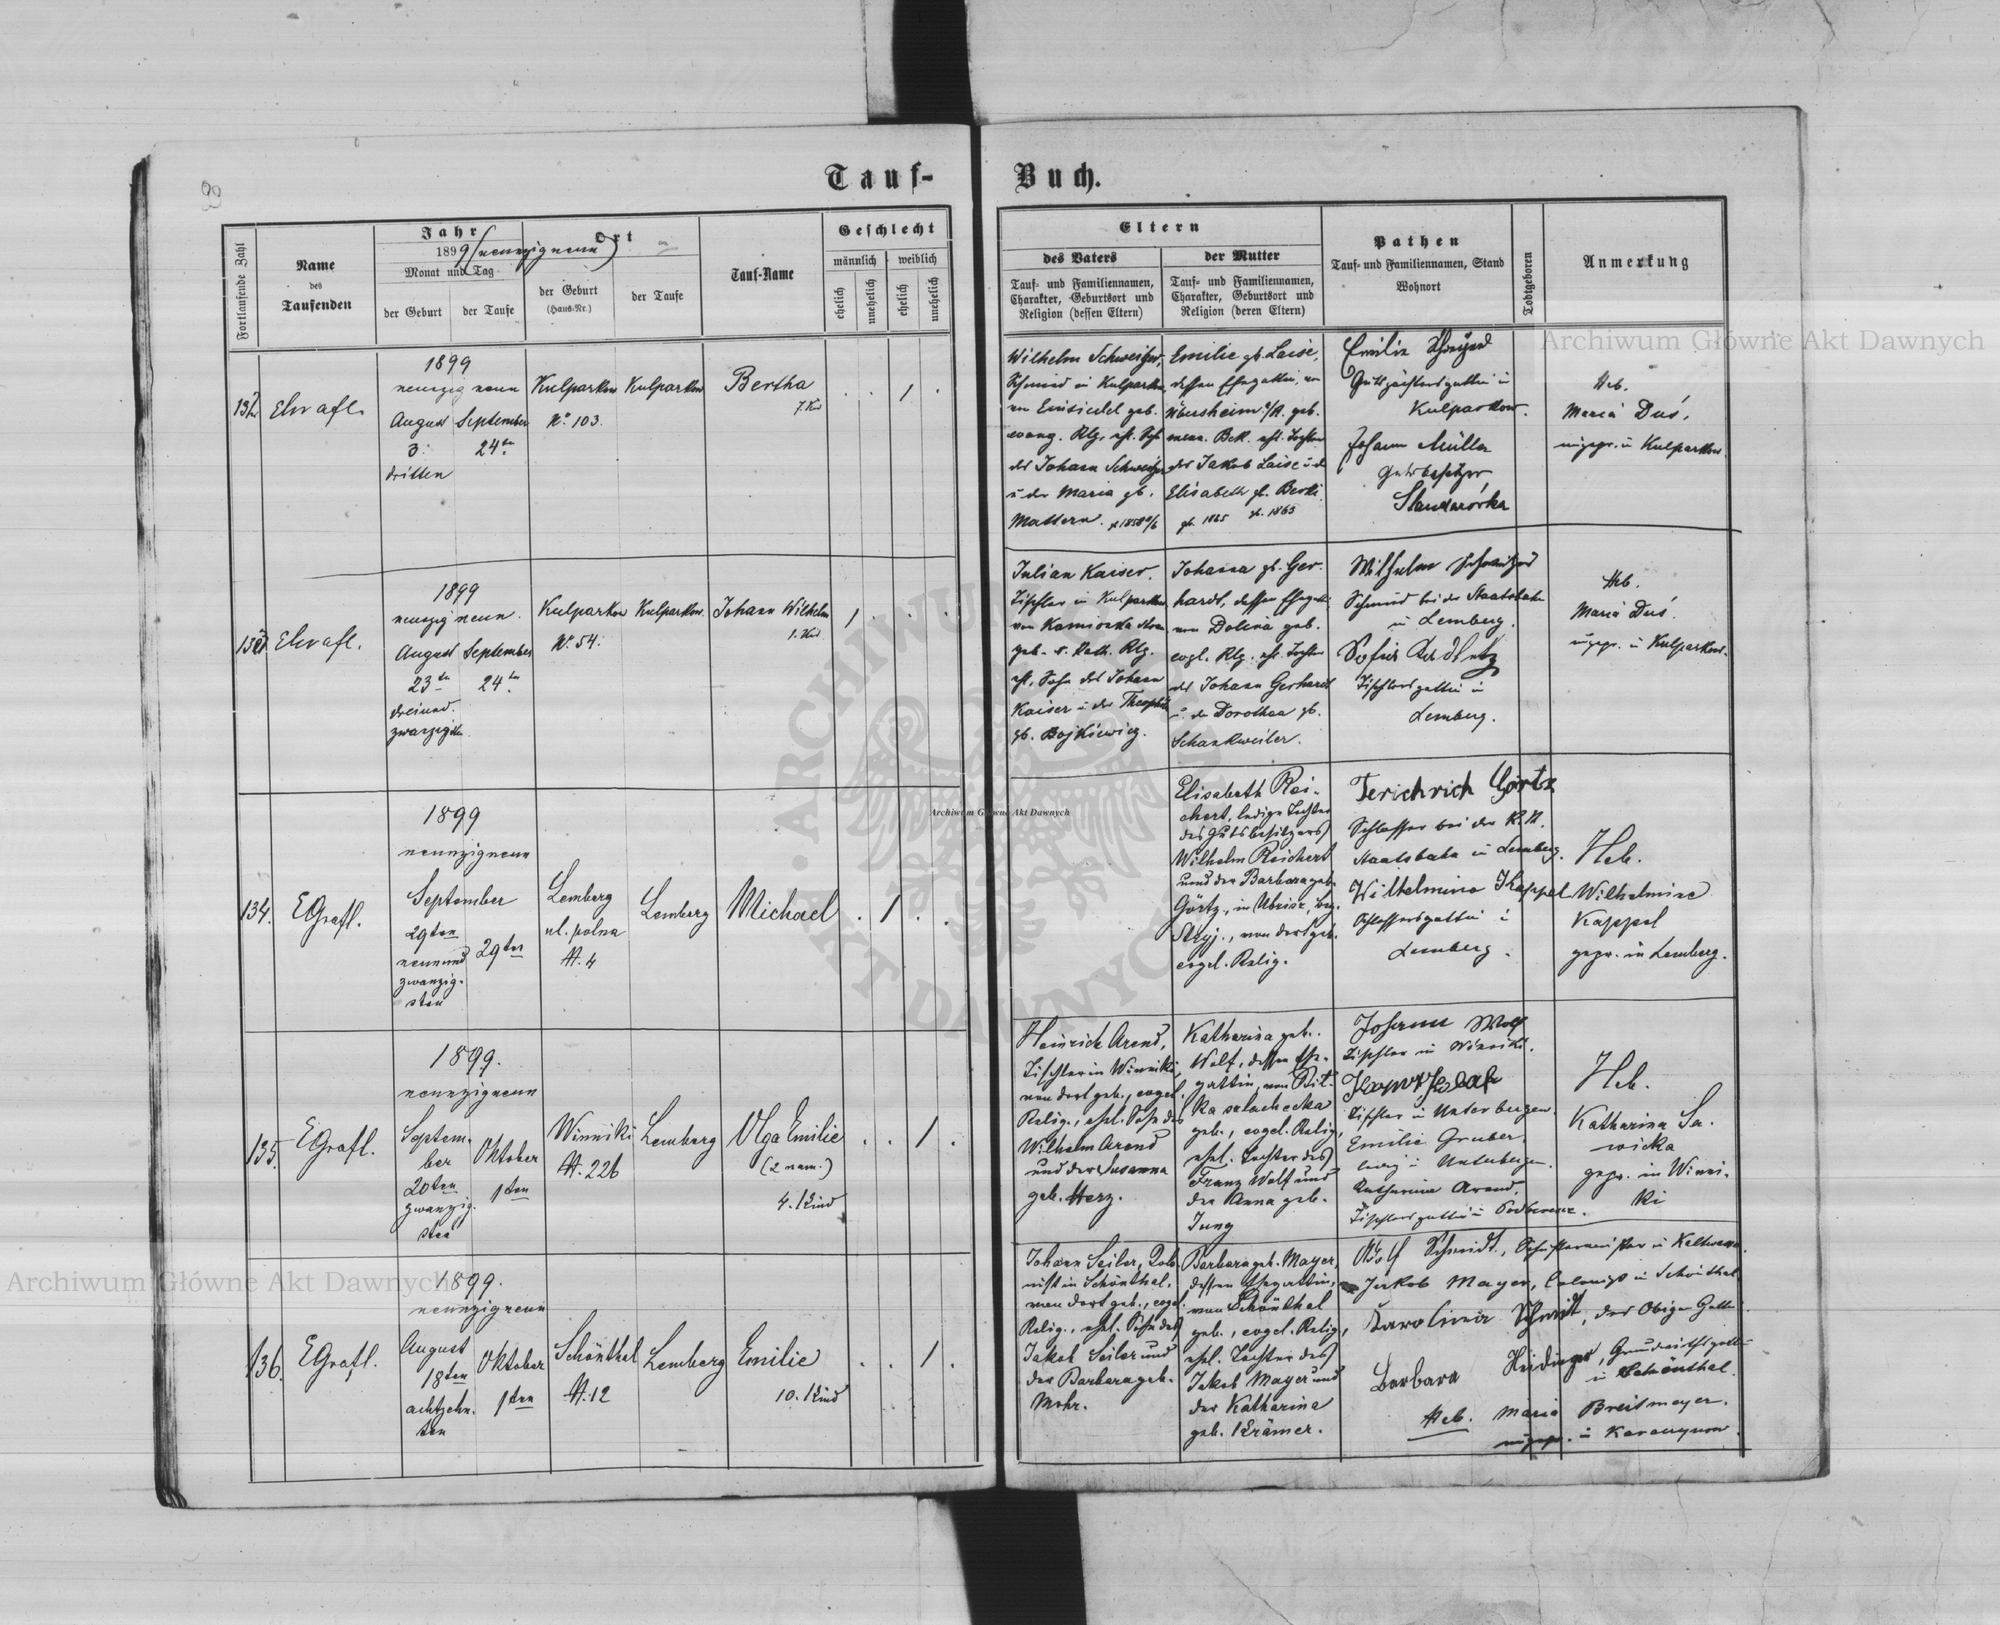 99
Tauf-
Buch.
Fortlaufende Zahl
Name
des
Taufenden
Jahr
1899 (neunzigneun)
Monat und Tag
der Geburt
der Taufe
Ort
der Geburt
(Haus-Nr.)
der Taufe
Tauf-Name
Geschlecht
männlich
weiblich
ehelich
unehelich
ehelich
unehelich
Eltern
des Vaters
Tauf- und Familiennamen,
Charakter, Geburtsort und
Religion (dessen Eltern)
der Mutter
Tauf- und Familiennamen,
Charakter, Geburtsort und
Religion (deren Eltern)
Pathen
Tauf- und Familiennamen, Stand
Wohnort
Todtgeboren
Anmerkung
1899
neunzig neun
August
3.
dritten
September
24ten
Kulparkow
No 103.
Kulparkow
Bertha
7. Kd
Wilhelm Schweitzer,
Schmied in Kulparkow,
von Einsiedel geb.
evang. Rlg.
des Johann Schweitzer
u. der Maria gb.
Mattern.
Emilie gb. Laise,
dessen Ehegattin, von
geb.
menn. Bek. ehl. Tochter
des Jakob Laise u. d.
Elisabeth gb.
gb. 1865
Emilie
Gutspächtersgattin in
Kulparkow.
Johann Müller
Gutsbesitzer
Heb.
Maria Duś,
ungepr. in Kulparkow
133
1899
neunzig neun.
August
23ten
dreiund.
zwanzigsten
September
24ten
Kulparkow
No 54.
Kulparkow.
Johann Wilhelm
1. Kd.
Julian Kaiser,
Tischler in Kulparkow
von Kamionka
geb. r. Kath. Rlg.
ehl. Sohn des Johann
Kaiser u. der Theophila
gb. Bojkiewicz.
Johanna gb. Ger-
hardt, dessen Ehegattin
von Dolina geb.
evgl. Rlg. ehl. Tochter
des Johann Gerhardt
u. der Dorothea gb.
Schankweiler.
Wilhelm Schweitzer
Schmied bei der Staatsbahn
in Lemberg.
Sofia
Tischlersgattin in
Lemberg.
Heb.
Maria Duś.
ungepr. in Kulparkow.
134.
1899
neunzigneun
September
29ten
neunund
zwanzig-
sten
29ten
Lemberg
ul. polna
N. 4
Lemberg
Michael
Elisabeth Rei-
chert, ledige Tochter
des Gutsbesitzers
Wilhelm Reichert
und der Barbara geb.
Görtz, in Ubrisz, bez.
Stryj., von dort geb.
evgel. Relig.
Görtz
Schlosser bei der K.K.
Staatsbahn in Lemberg.
Wilhelmine Kappel
Schlossersgattin in
Lemberg.
Heb.
Wilhelmine
Kappel
gepr. in Lemberg.
135.
1899.
neunzigneun
Septem-
ber
20ten
zwanzig-
sten
Oktober
1ten
Winniki
N. 226
Lemberg
Olga Emilie
(2 nam.)
4. Kind
Heinrich Arend,
Tischler in Winniki,
von dort geb., evgel.
Relig., ehel. Sohn des
Wilhelm Arend
und der Susanna
geb. Herz.
Katharina geb.
Wolf, dessen Ehe-
gattin, von Rit-
ka szlachecka
geb., evgel. Relig.,
ehel. Tochter des
Franz Wolf und
der Anna geb.
Jung
Johann Wolf
Tischler in Winniki.
Tischler in Unterbergen.
Emilie Gruber,
ledig in Unterbergen.
Katharina Arend,
Tischlersgattin in
Heb.
Katharina Sa-
wicka
gepr. in Winni-
ki
136.
1899.
neunzigneun
August
18ten
achtzehn-
ten
Oktober
1ten
Schönthal
N. 12
Lemberg
Emilie
10. Kind
Johann Seiler, Kolo-
nist in Schönthal,
von dort geb., evgel.
Relig., ehel. Sohn des
Jakob Seiler und
der Barbara geb.
Mohr.
Barbara geb. Mayer,
dessen Ehegattin,
von Schönthal
geb., evgel. Relig.,
ehel. Tochter des
Jakob Mayer und
der Katharina
geb. Krämer.
Schmidt, Schustermeister in
Jakob Mayer, Colonist in Schönthal
Karolina Schmidt, des Obigen Gattin
Barbara Heidinger, Grundwirthsgattin
in Schönthal.
Heb. Maria Breitmayer.
ungepr. in
Archiwum Główne Akt Dawnych
Archiwum Główne Akt Dawnych
Archiwum Główne Akt Dawnych
ARCHIWUM
AKT DAWNYCH